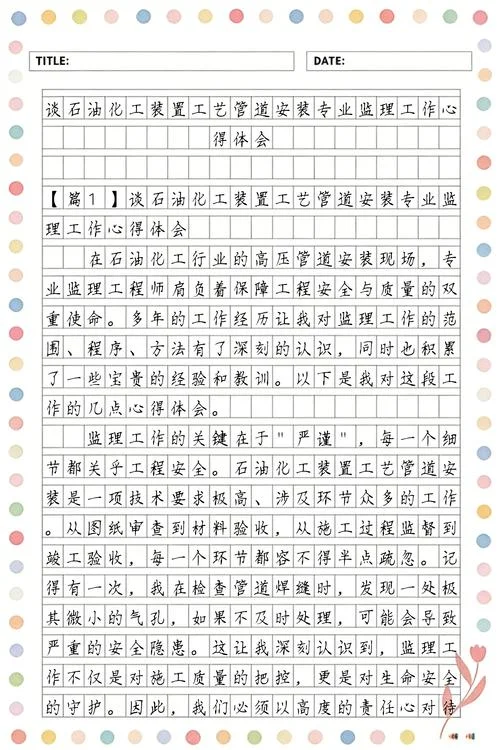 TITLE:
DATE:
谈石油化工装置工艺管道安装专业监理工作心
得体会
【篇1】谈石油化工装置工艺管道安装专业监
理工作心得体会
在石油化工行业的高压管道安装现场,专
业监理工程师肩负着保障工程安全与质量的双
重使命。多年的工作经历让我对监理工作的范
围、程序、方法有了深刻的认识,同时也积累
了一些宝贵的经验和教训。以下是我对这段工
作的几点心得体会。
监理工作的关键在于"严谨",每一个细
节都关乎工程安全。石油化工装置工艺管道安
装是一项技术要求极高、涉及环节众多的工作
。从图纸审查到材料验收,从施工过程监督到
竣工验收,每一个环节都容不得半点疏忽。记
得有一次,我在检查管道焊缝时,发现一处极
其微小的气孔,如果不及时处理,可能会导致
严重的安全隐患。这让我深刻认识到,监理工
作不仅是对施工质量的把控,更是对生命安全
的守护。因此,我们必须以高度的责任心对待